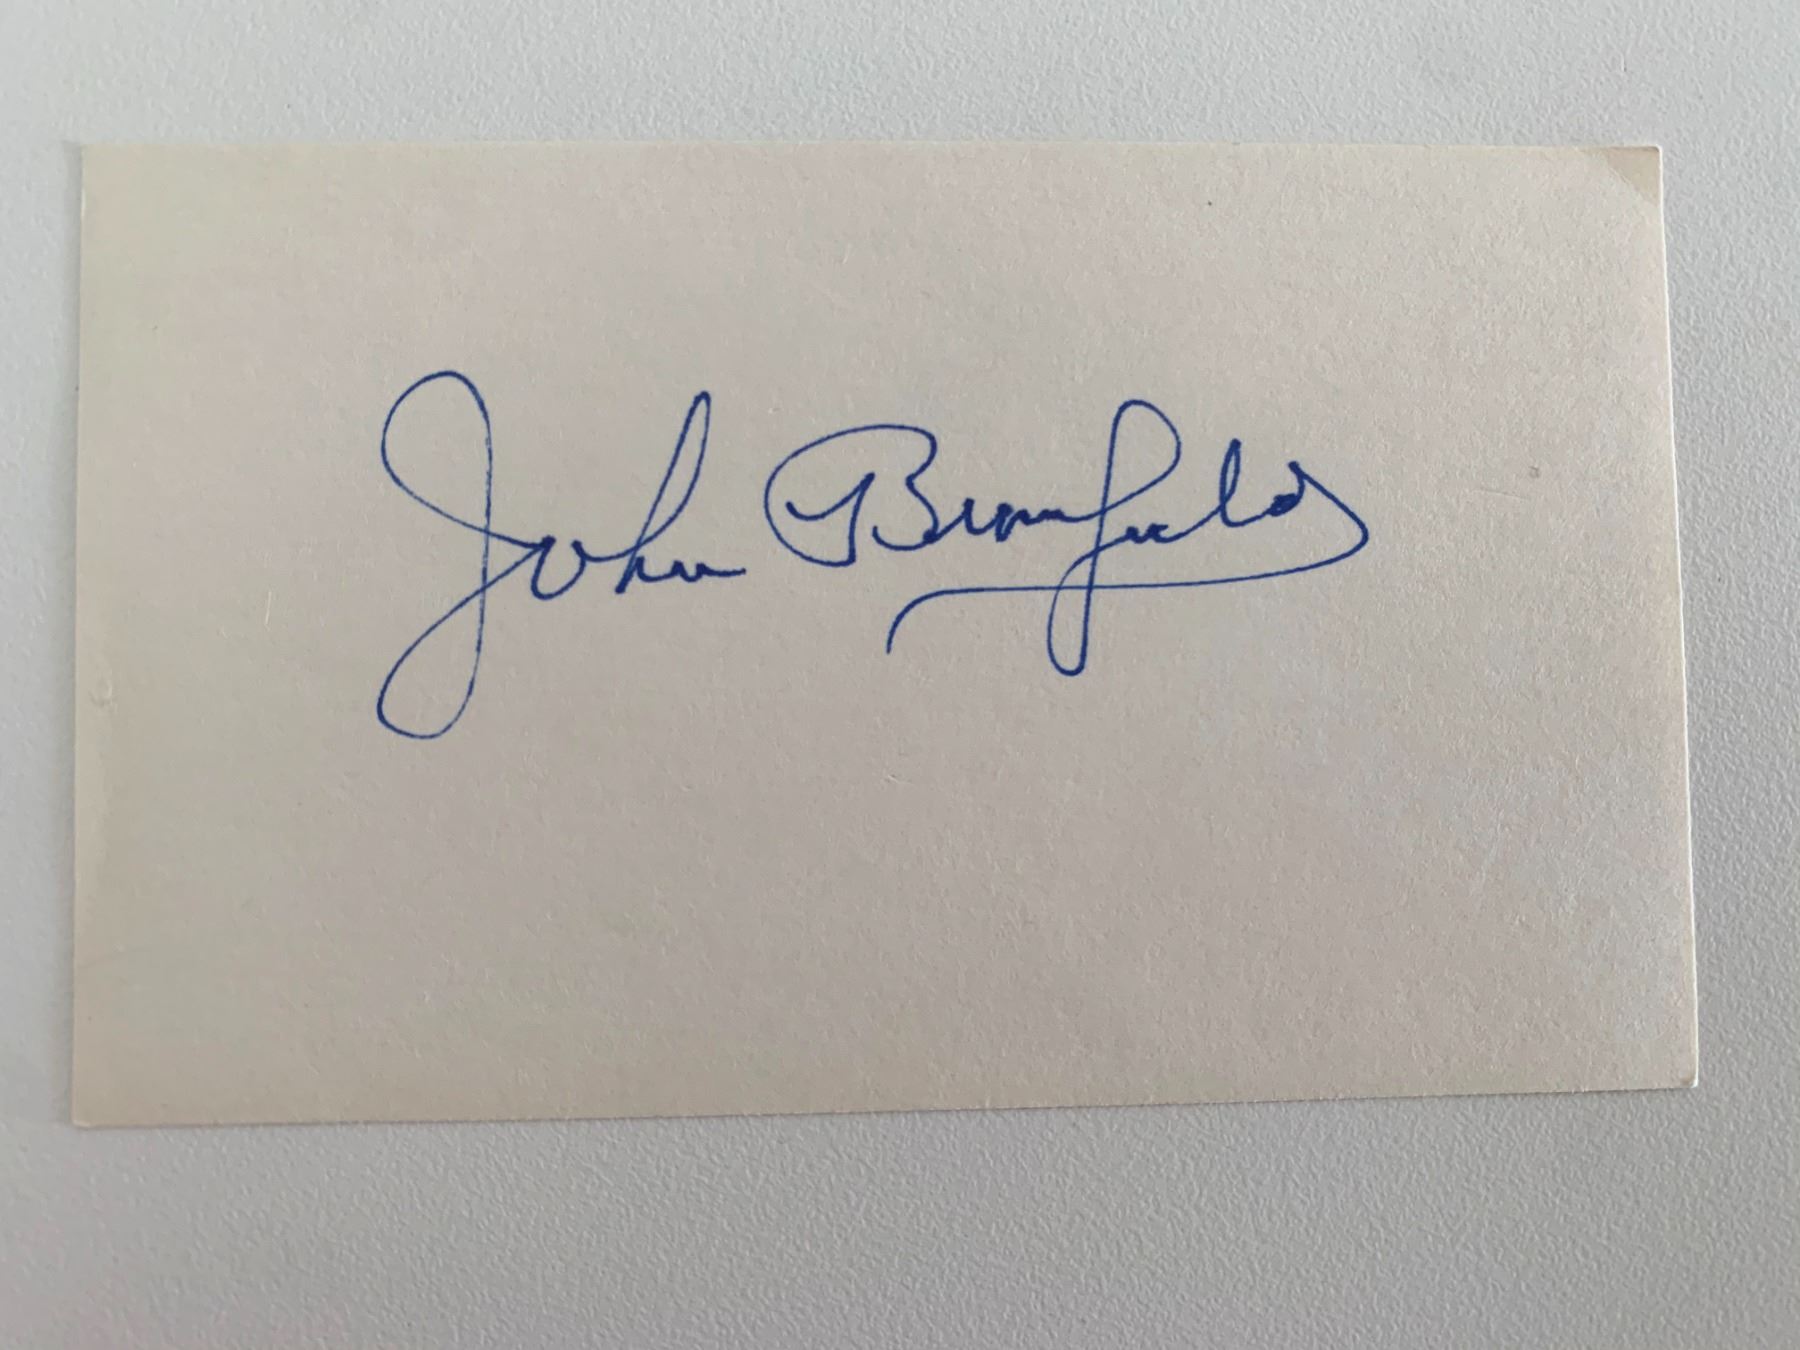 John Bromfield